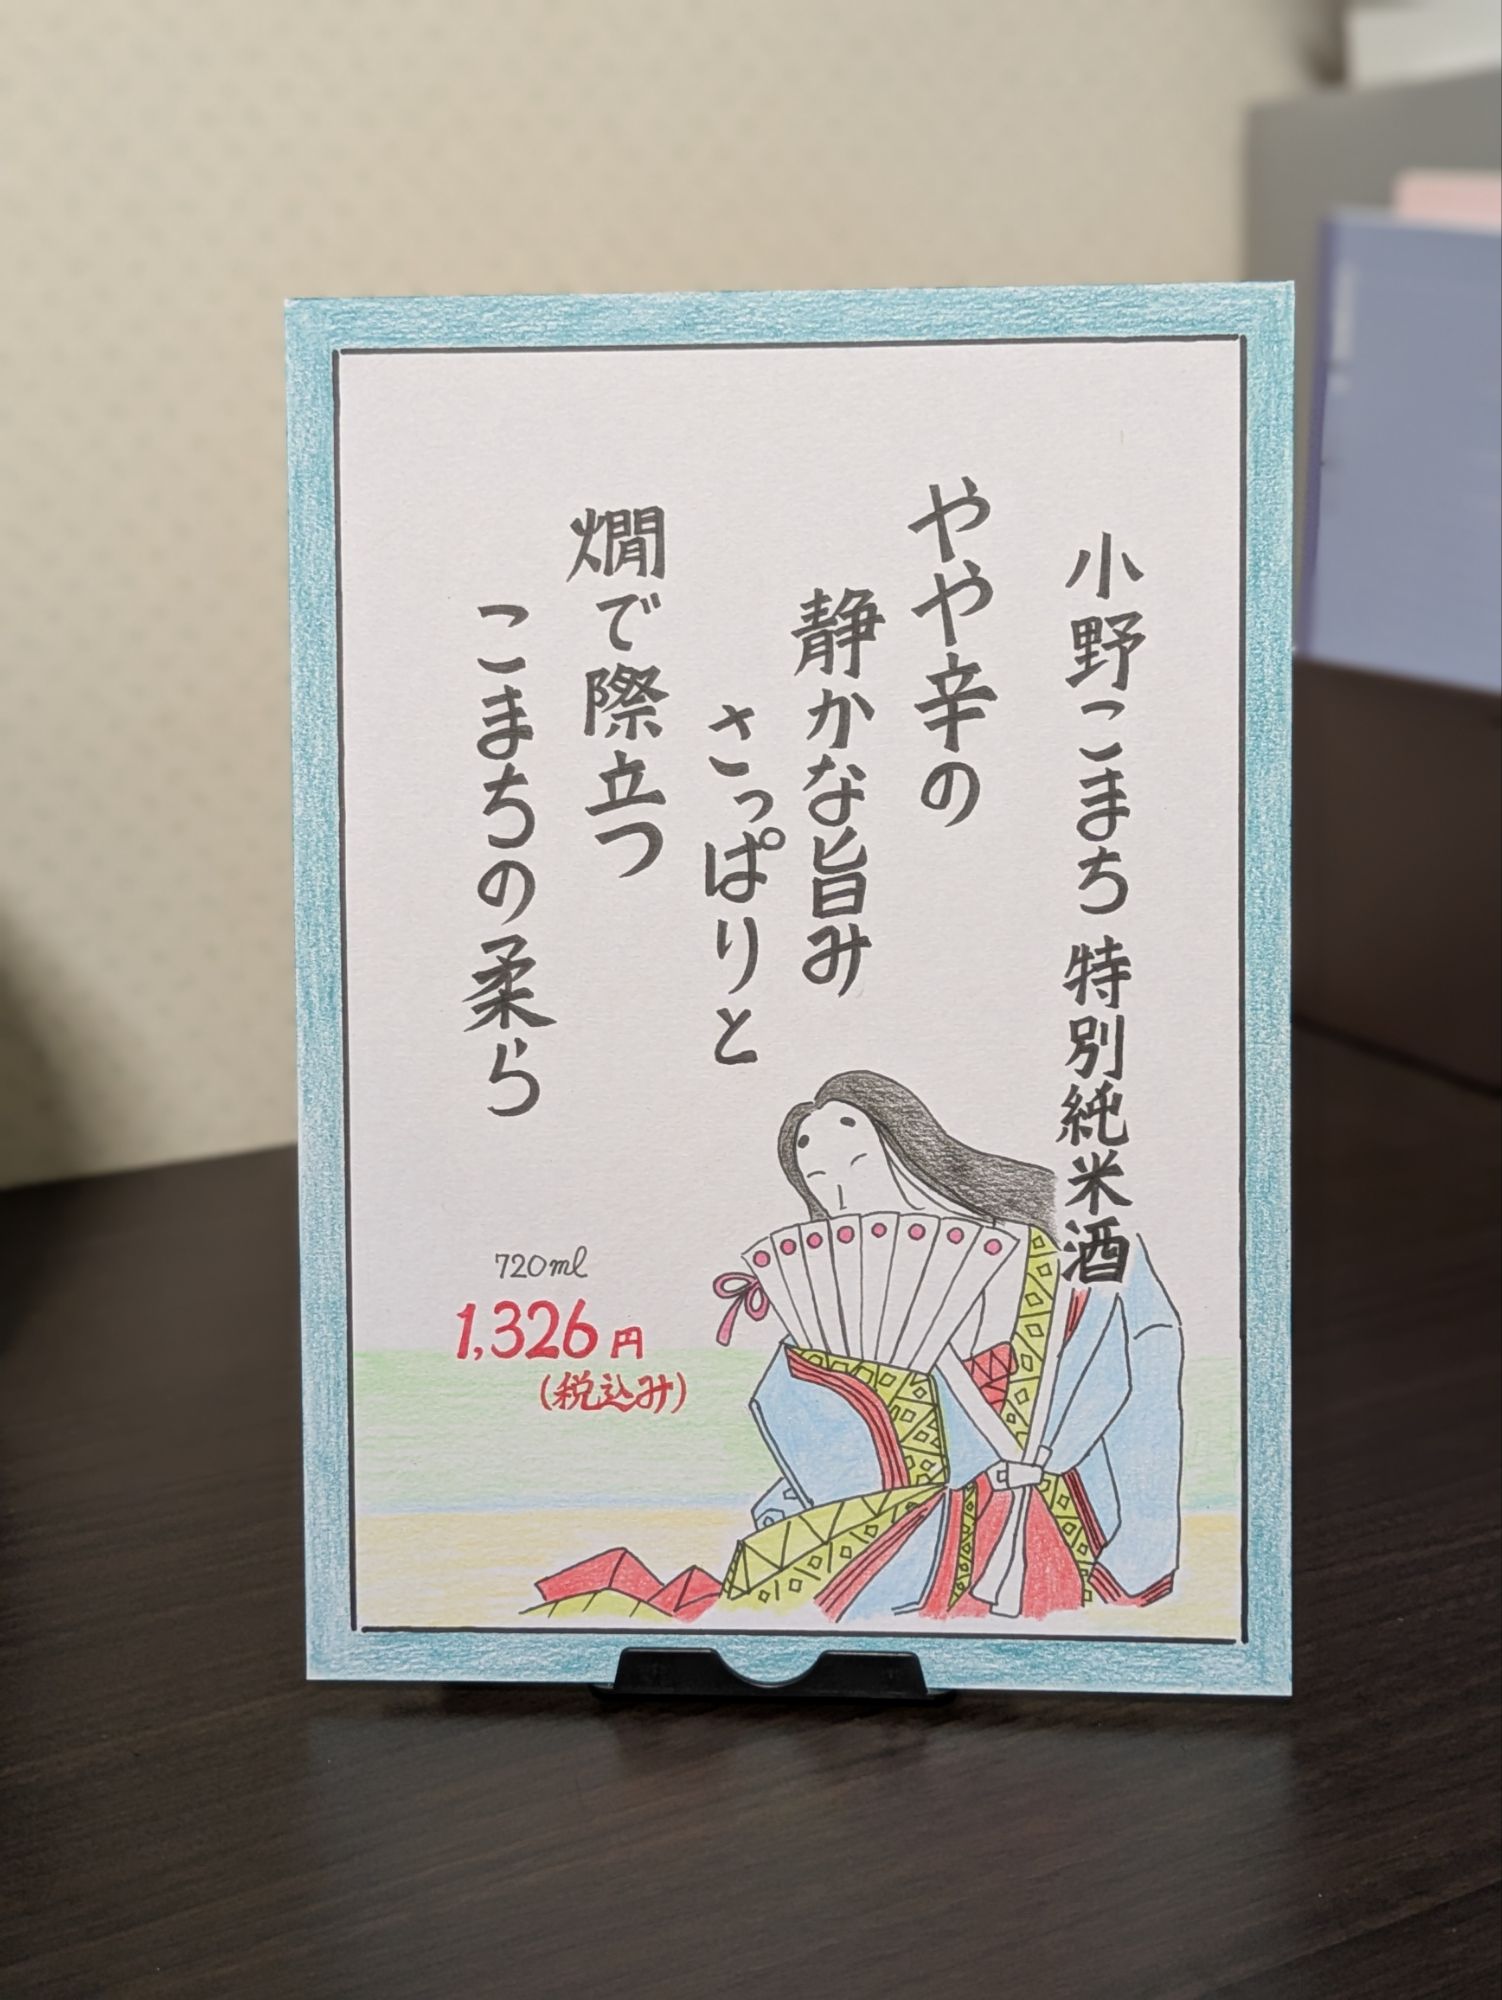 小野こまち 特別純米酒
やや辛の
静かな旨み
さっぱりと
燗で際立つ
こまちの柔ら
720ml
1,326円
(税込み)